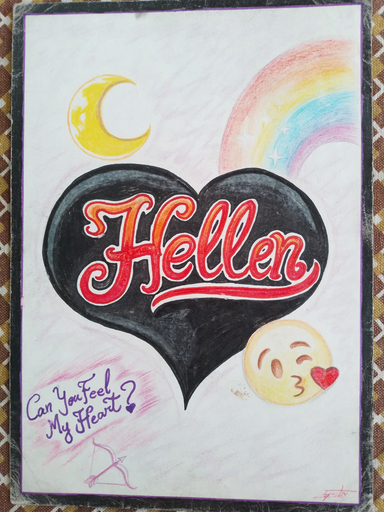 Hellen
Can You Feel
My Heart?